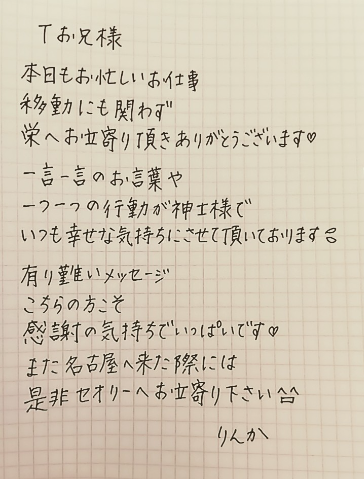 Tお兄様
本日もお忙しいお仕事
移動にも関わず
栄へお立寄り頂きありがとうございます♡
一言一言のお言葉や
一つ一つの行動が神士様で
いつも幸せな気持ちにさせて頂いております
有り難いメッセージ
こちらの方こそ
感謝の気持ちでいっぱいです♡
また名古屋へ来た際には
是非セオリーへお立寄り下さい^^
りんか